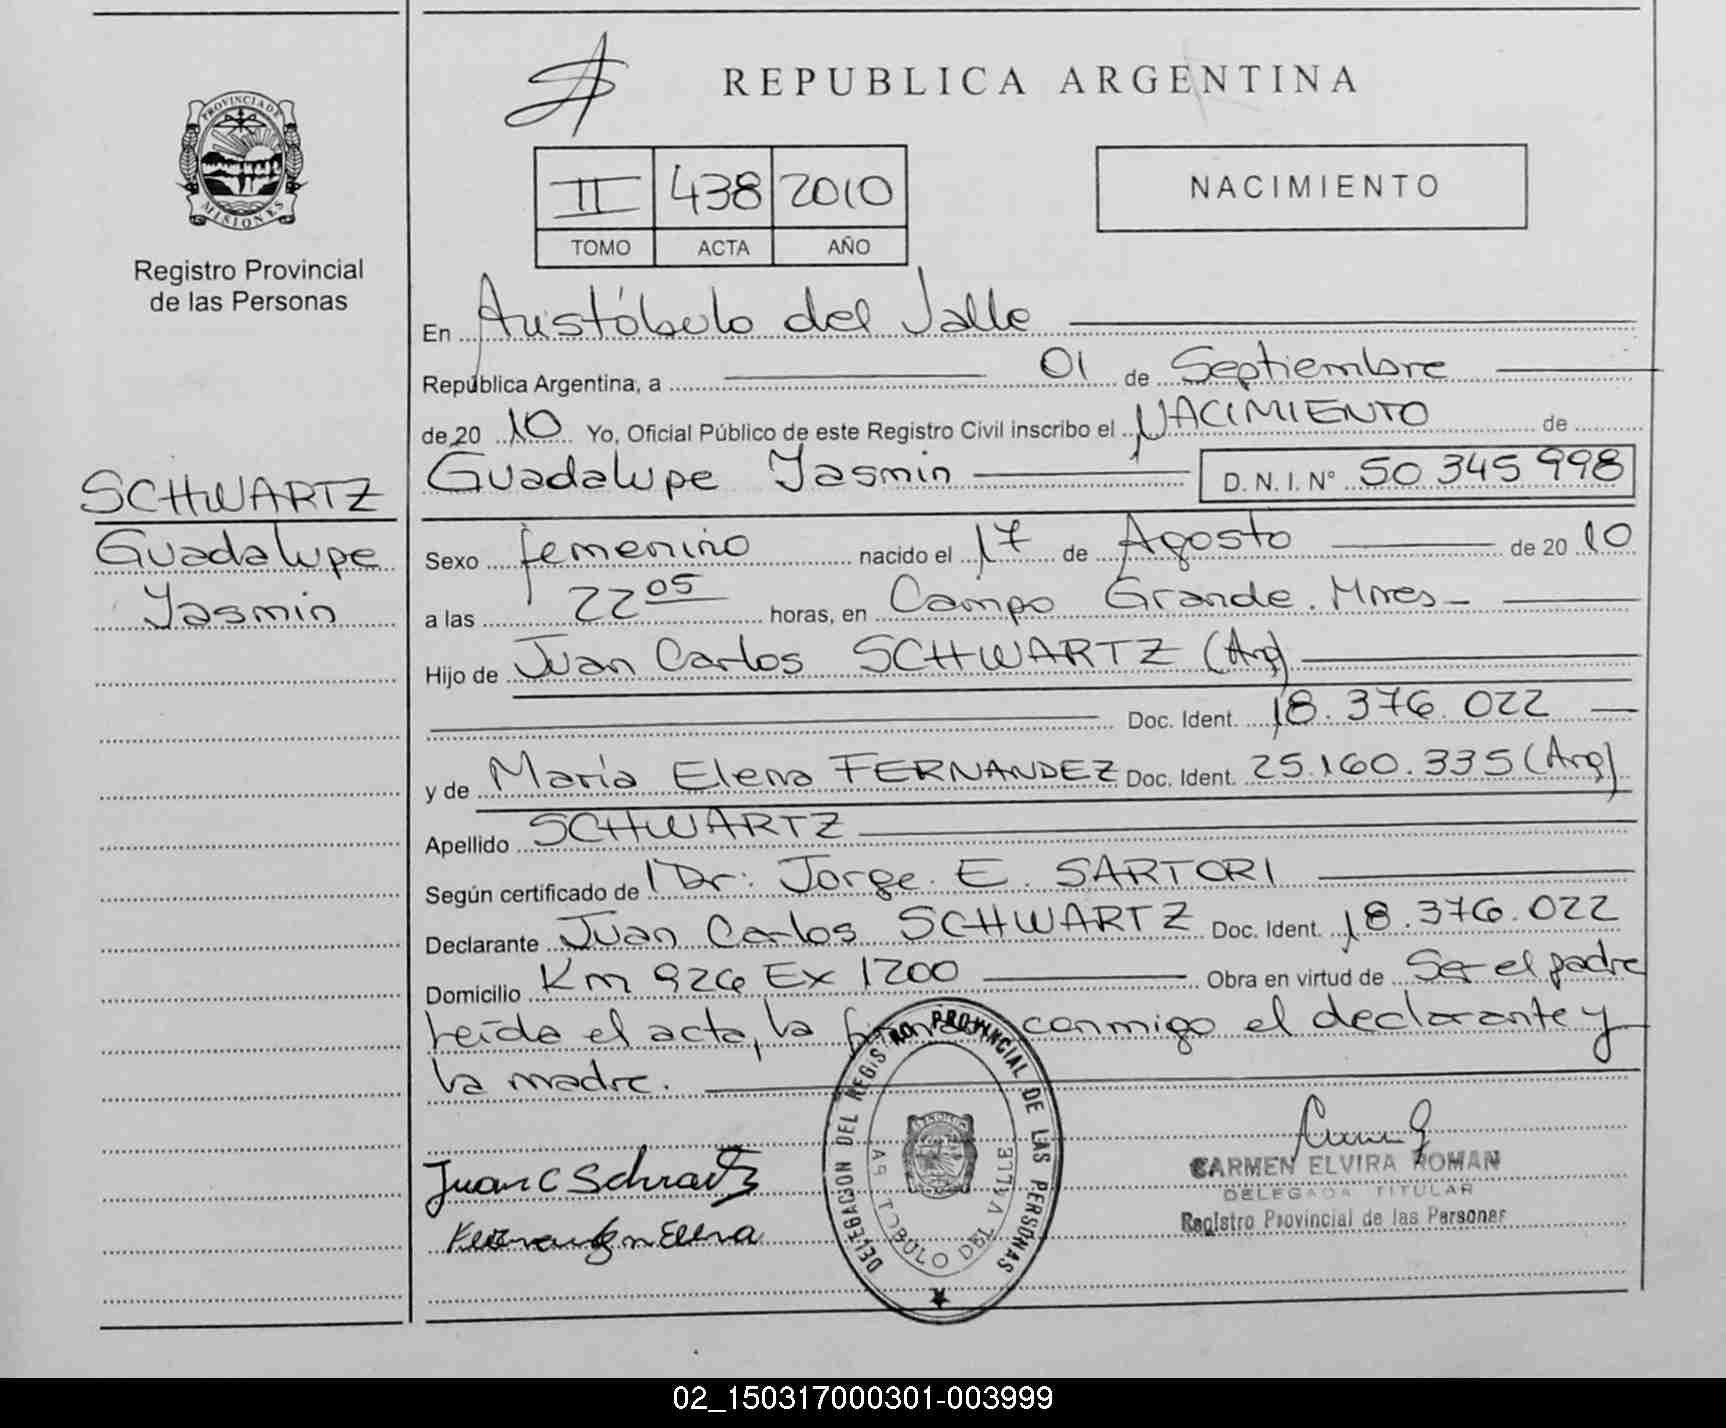 PROVINCIA DE
MISIONES
Registro Provincial
de las Personas
SCHWARTZ
Guadalupe
Yasmin
REPUBLICA ARGENTINA
II 438 2010
TOMO ACTA AÑO
NACIMIENTO
En Aristóbulo del Valle
República Argentina, a 01 de Septiembre
de 20 10 Yo, Oficial Público de este Registro Civil inscribo el NACIMIENTO de
Guadalupe Yasmin D.N.I. Nº 50 345 998
Sexo femenino nacido el 17 de Agosto de 20 10
a las 22 05 horas, en Campo Grande. Mnes-
Hijo de Juan Carlos SCHWARTZ (Arg)
Doc. Ident. 18.376.022
y de María Elena FERNANDEZ Doc. Ident. 25.160.335 (Arg)
Apellido SCHWARTZ
Según certificado de Dr: Jorge. E. SARTORI
Declarante Juan Carlos SCHWARTZ Doc. Ident. 18.376.022
Domicilio Km 926 Ex 1200 Obra en virtud de Ser el padre
Leída el acta, la firman conmigo el declarante y
la madre.
DELEGACION DEL REGISTRO PROVINCIAL DE LAS PERSONAS
AR TOBULO DEL VALLE
Juan C Schwartz
CARMEN ELVIRA ROMAN
DELEGADA TITULAR
Registro Provincial de las Personas
02_150317000301-003999